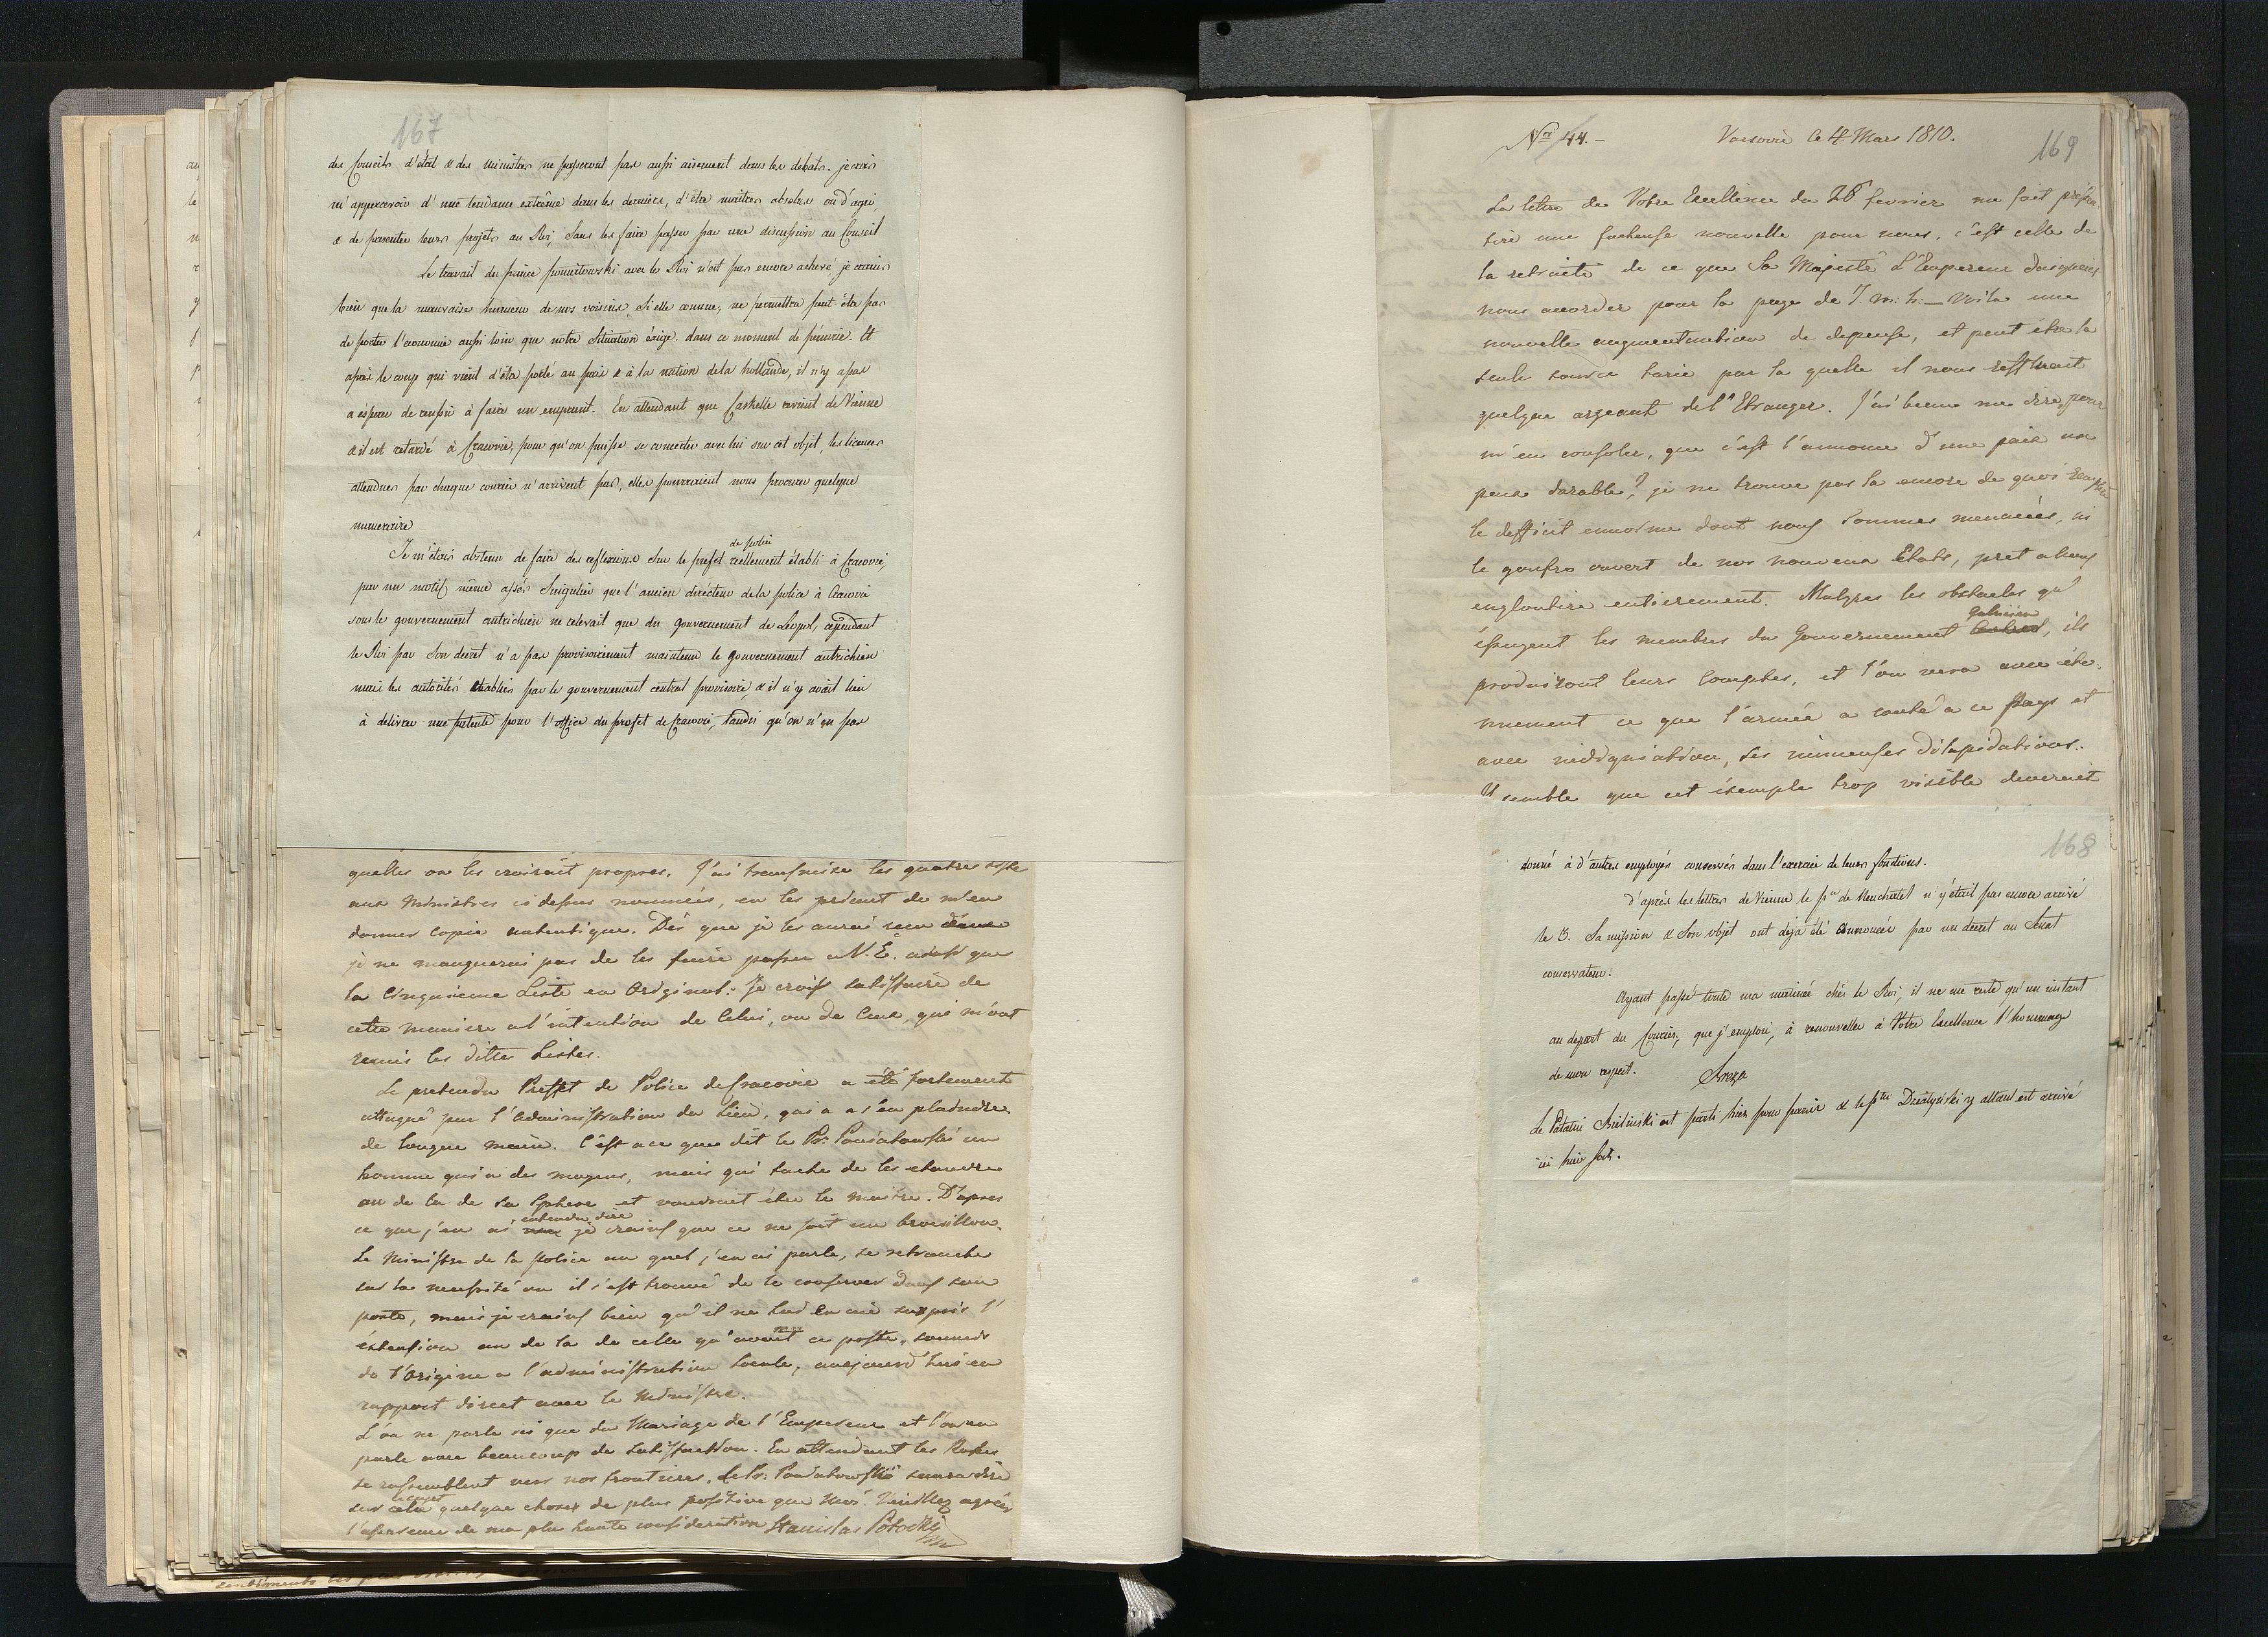 167
des Conseils d'état & des Ministres ne passeront pas aussi aisement dans les débats. je crois
m'appercevoir d'une tendance extrême dans les derniers, d'être maitres absolus ou d'agir,
& de presenter leurs projets au Roi, sans les faire passer par une discussion au Conseil
Le travail du prince poniatowski avec le Roi n'est pas encore achevé, je crains
bien que la mauvaise humeur de nos voisins, si elle continue, ne permettra peut-être pas
de porter l'economie aussi loin que notre situation éxige. dans ce moment de pénurie. Et
après le coup qui vient d'être porté au païs & à la nation de la hollande, il n'y a pas
a espérer de reussir à faire un emprunt. En attendant que Caskelle revient de Vienne
& il est retardé à Cracovie, pour qu'on puisse se concerter avec lui sur cet objet, les licences
attendues par chaque courier n'arrivent pas, elles pourraient nous procurer quelque
numeraire
de police
Je m'étais abstenu de faire des reflexions sur le prefet réellement établi à Cracovie,
par un motif même assés singulier que l'ancien directeur de la police à Cracovie
sous le gouvernement autrichien ne relevait que du gouvernement de Leopol, cependant
le Roi par son decret n'a pas provisoirement maintenu le gouvernement autrichien
mais les autorités établies par le gouvernement central provisoire, & il n'y avait lieu
à delivrer une patente pour l'office du prefet de Cracovie, tandis qu'on n'en pas
quelles on les croirait propres. J'ai transmise les quatre
aux Ministres ci dessus nommés, en les priant de m'en
donner copie autentique. Dès que je les aurai
je ne manquerai pas de les faire passer a V. E. aussi que
la Cinquieme Liste en Original. Je crois satisfaire de
cette maniere a l'intention de Celui, ou de Ceux, qui m'ont
remis les dittes Listes.
Le pretendu Preffet de Police de Cracovie a été fortement
attaqué par l'administration du Lieu, qui a a s'en plaindre
de longue main. C'est a ce que dit le Pr: Poniatowski un
homme qui a des moyens, mais qui tache de les etendre
au de la de sa sphere et voudroit être le maitre. D'apres
entendu dire
ce que j'en ai je crains que ce ne soit un brouillon.
Le Ministre de la Police au quel j'en ai parlé, se retranche
sur la necessité ou il s'est trouvé de le conserver dans son
poste, mais je crains bien qu'il ne lui en aie surpris l'
éxtension au de la de celle qu'avoit ce poste, soumis
de l'Origine a l'administration Locale, aujourd'hui en
rapport direct avec le Ministre.
L'on ne parle ici que du Mariage de l'Empereur et l'on en
parle avec beaucoup de satisfaction. En attendant les Russes
se rassemblent vers nos frontieres. Le Pr: Poniatowski saura dire
sur cela quelque choses de plus positive que moi. Veuillez agréer
l'assurance de ma plus haute consideration Stanislas Potocki
Nro 44. – Varsovie le 4 Mars 1810.
169
La lettre de Votre Excellence du 26 fevrier me fait
tire une facheuse nouvelle pour nous, c'est celle de
la retraite de ce que Sa Majesté L'Empereur daignoit
nous accorder pour la paye de 7. m. h. – Voila une
nouvelle augmentantion de depense, et peut être la
seule source tarie par la quelle il nous restterait
quelque argeant de l'Etranger. J'ai beau me dire, pour
m'en consoler, que c'est l'annonce d'une paix un
peux durable, je ne trouve pas la encore de quoi remplir
le defficit ennorme dont nous sommes menacés, ni
le goufre ouvert de nos nouveaux Etats, pret a nous
engloutire entierement. Malgres les obstacles qu'
Galicien
éssuyent les membres du Gouvernement, ils
produiront leurs Comptes, et l'on vera avec éto-
nnement ce que l'armée a couté a ce Pays et
avec indignation, ses immenses dilapidations.
Il semble que cet éxemple trop visible deveroit
168
donné à d'autres employés conservés dans l'exercice de leurs fonctions.
D'après les lettres de Vienne, le pce de Neuchatel n'y était pas encore arrivé
le 3. Sa mission & son objet ont déja été annoncés par un decret au Senat
conservateur.
Ayant passé toute ma matinée chés le Roi, il ne me reste qu'un instant
au depart du Courier, que j'emploie, à renouveller à Votre Excellence l'hommage
de mon respect. Breza
Le Palatin Bilinski est parti hier pour paris & le Dzialynski y allant est arrivé
ici hier soir.